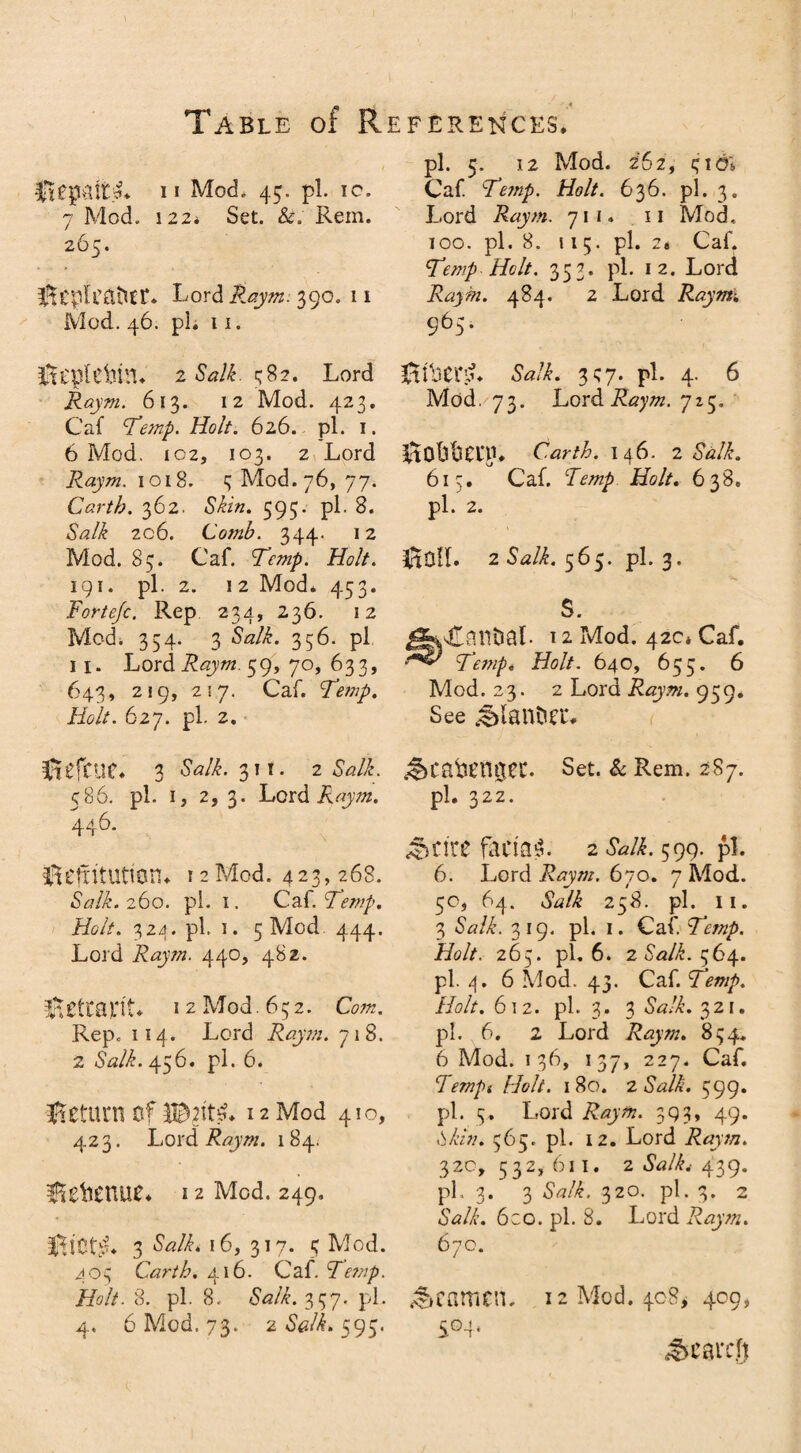 Table of References.
Repairs. 11 Mod. 45. pl. 10.
7 Mod. 122. Set. &. Rem.
265.
Repleader. Lord Raym. 390. 11
Mod. 46. pl. 11.
Replevin. 2 Salk. 582. Lord
Raym. 613. 12 Mod. 423.
Caf Temp. Holt. 626. pl. 1.
6 Mod. 102, 103. 2 Lord
Raym. 1018. 5 Mod. 76, 77.
Carth. 362. Skin. 595. pl. 8.
Salk 206. Comb. 344. 12
Mod. 85. Caf. Temp. Holt.
191. pl. 2. 12 Mod. 453.
Fortefc. Rep 234, 236. 12
Mod. 354. 3 Salk. 356. pl
11. Lord Raym. 59, 70, 633,
643, 219, 217. Caf. Temp.
Holt. 627. pl. 2.
Refcue. 3 Salk. 311. 2 Salk.
586. pl. 1, 2, 3. Lord Raym.
446.
Reftitution. 12 Mod. 423, 268.
Salk. 260. pl. 1. Caf. Temp.
Holt. 324. pl. 1. 5 Mod 444.
Lord Raym. 440, 482.
Retraxit. 12 Mod. 652. Com.
Rep. 114. Lord Raym. 718.
2 Salk. 456. pl. 6.
Return of Writs. 12 Mod 410,
423. Lord Raym. 184.
Revenue. 12 Mod. 249.
Riots. 3 Salk. 16, 317. 5 Mod.
405 Carth. 416. Caf. Temp.
Holt. 8. pl. 8. Salk. 357. pl.
4. 6 Mod. 73. 2 Salk. 595.
pl. 5. 12 Mod. 262, 510.
Caf. Temp. Holt. 636. pl. 3.
Lord Raym. 711. 11 Mod.
100. pl. 8. 115. pl. 2. Caf.
Temp Holt. 353. pl. 12. Lord
Raym. 484. 2 Lord Raym.
965.
Rivers. Salk. 357. pl. 4. 6
Mod. 73. Lord Raym. 725.
Robbery. Carth. 146. 2 Salk.
615. Caf. Temp Holt. 638.
pl. 2.
Roll. 2 Salk. 565. pl. 3.
S.
Scandal. 12 Mod. 420. Caf.
Temp. Holt. 640, 655. 6
Mod. 23. 2 Lord Raym. 959.
See Slander.
Scavenger. Set. & Rem. 287.
pl. 322.
Scire facias. 2 Salk. 599. pl.
6. Lord Raym. 670. 7 Mod.
50, 64. Salk 258. pl. 11.
3 Salk. 319. pl. 1. Caf. Temp.
Holt. 265. pl. 6. 2 Salk. 564.
pl. 4. 6 Mod. 43. Caf. Temp.
Holt. 612. pl. 3. 3 Salk. 321.
pl. 6. 2 Lord Raym. 854.
6 Mod. 136, 137, 227. Caf.
Temp. Holt. 180. 2 Salk. 599.
pl. 5. Lord Raym. 393, 49.
Skin. 565. pl. 12. Lord Raym.
320, 532, 611. 2 Salk. 439.
pl. 3. 3 Salk. 320. pl. 3. 2
Salk. 600. pl. 8. Lord Raym.
670.
Seamen. 12 Mod. 408, 409,
504.
Search